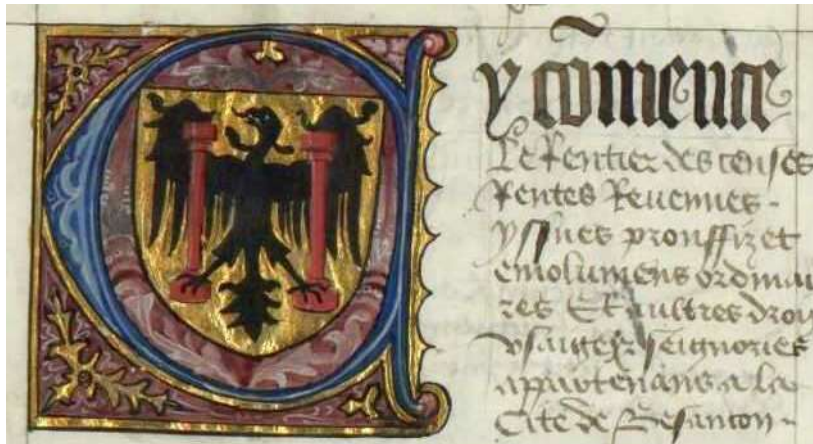 Cy cõmence
Le Rentier des censes
Rentes Revennes -
yssues prouffiz et
emolumens ordinai
res Et aultres droi
vsaiges seignories
appartenans a la
Cite de Besancon -